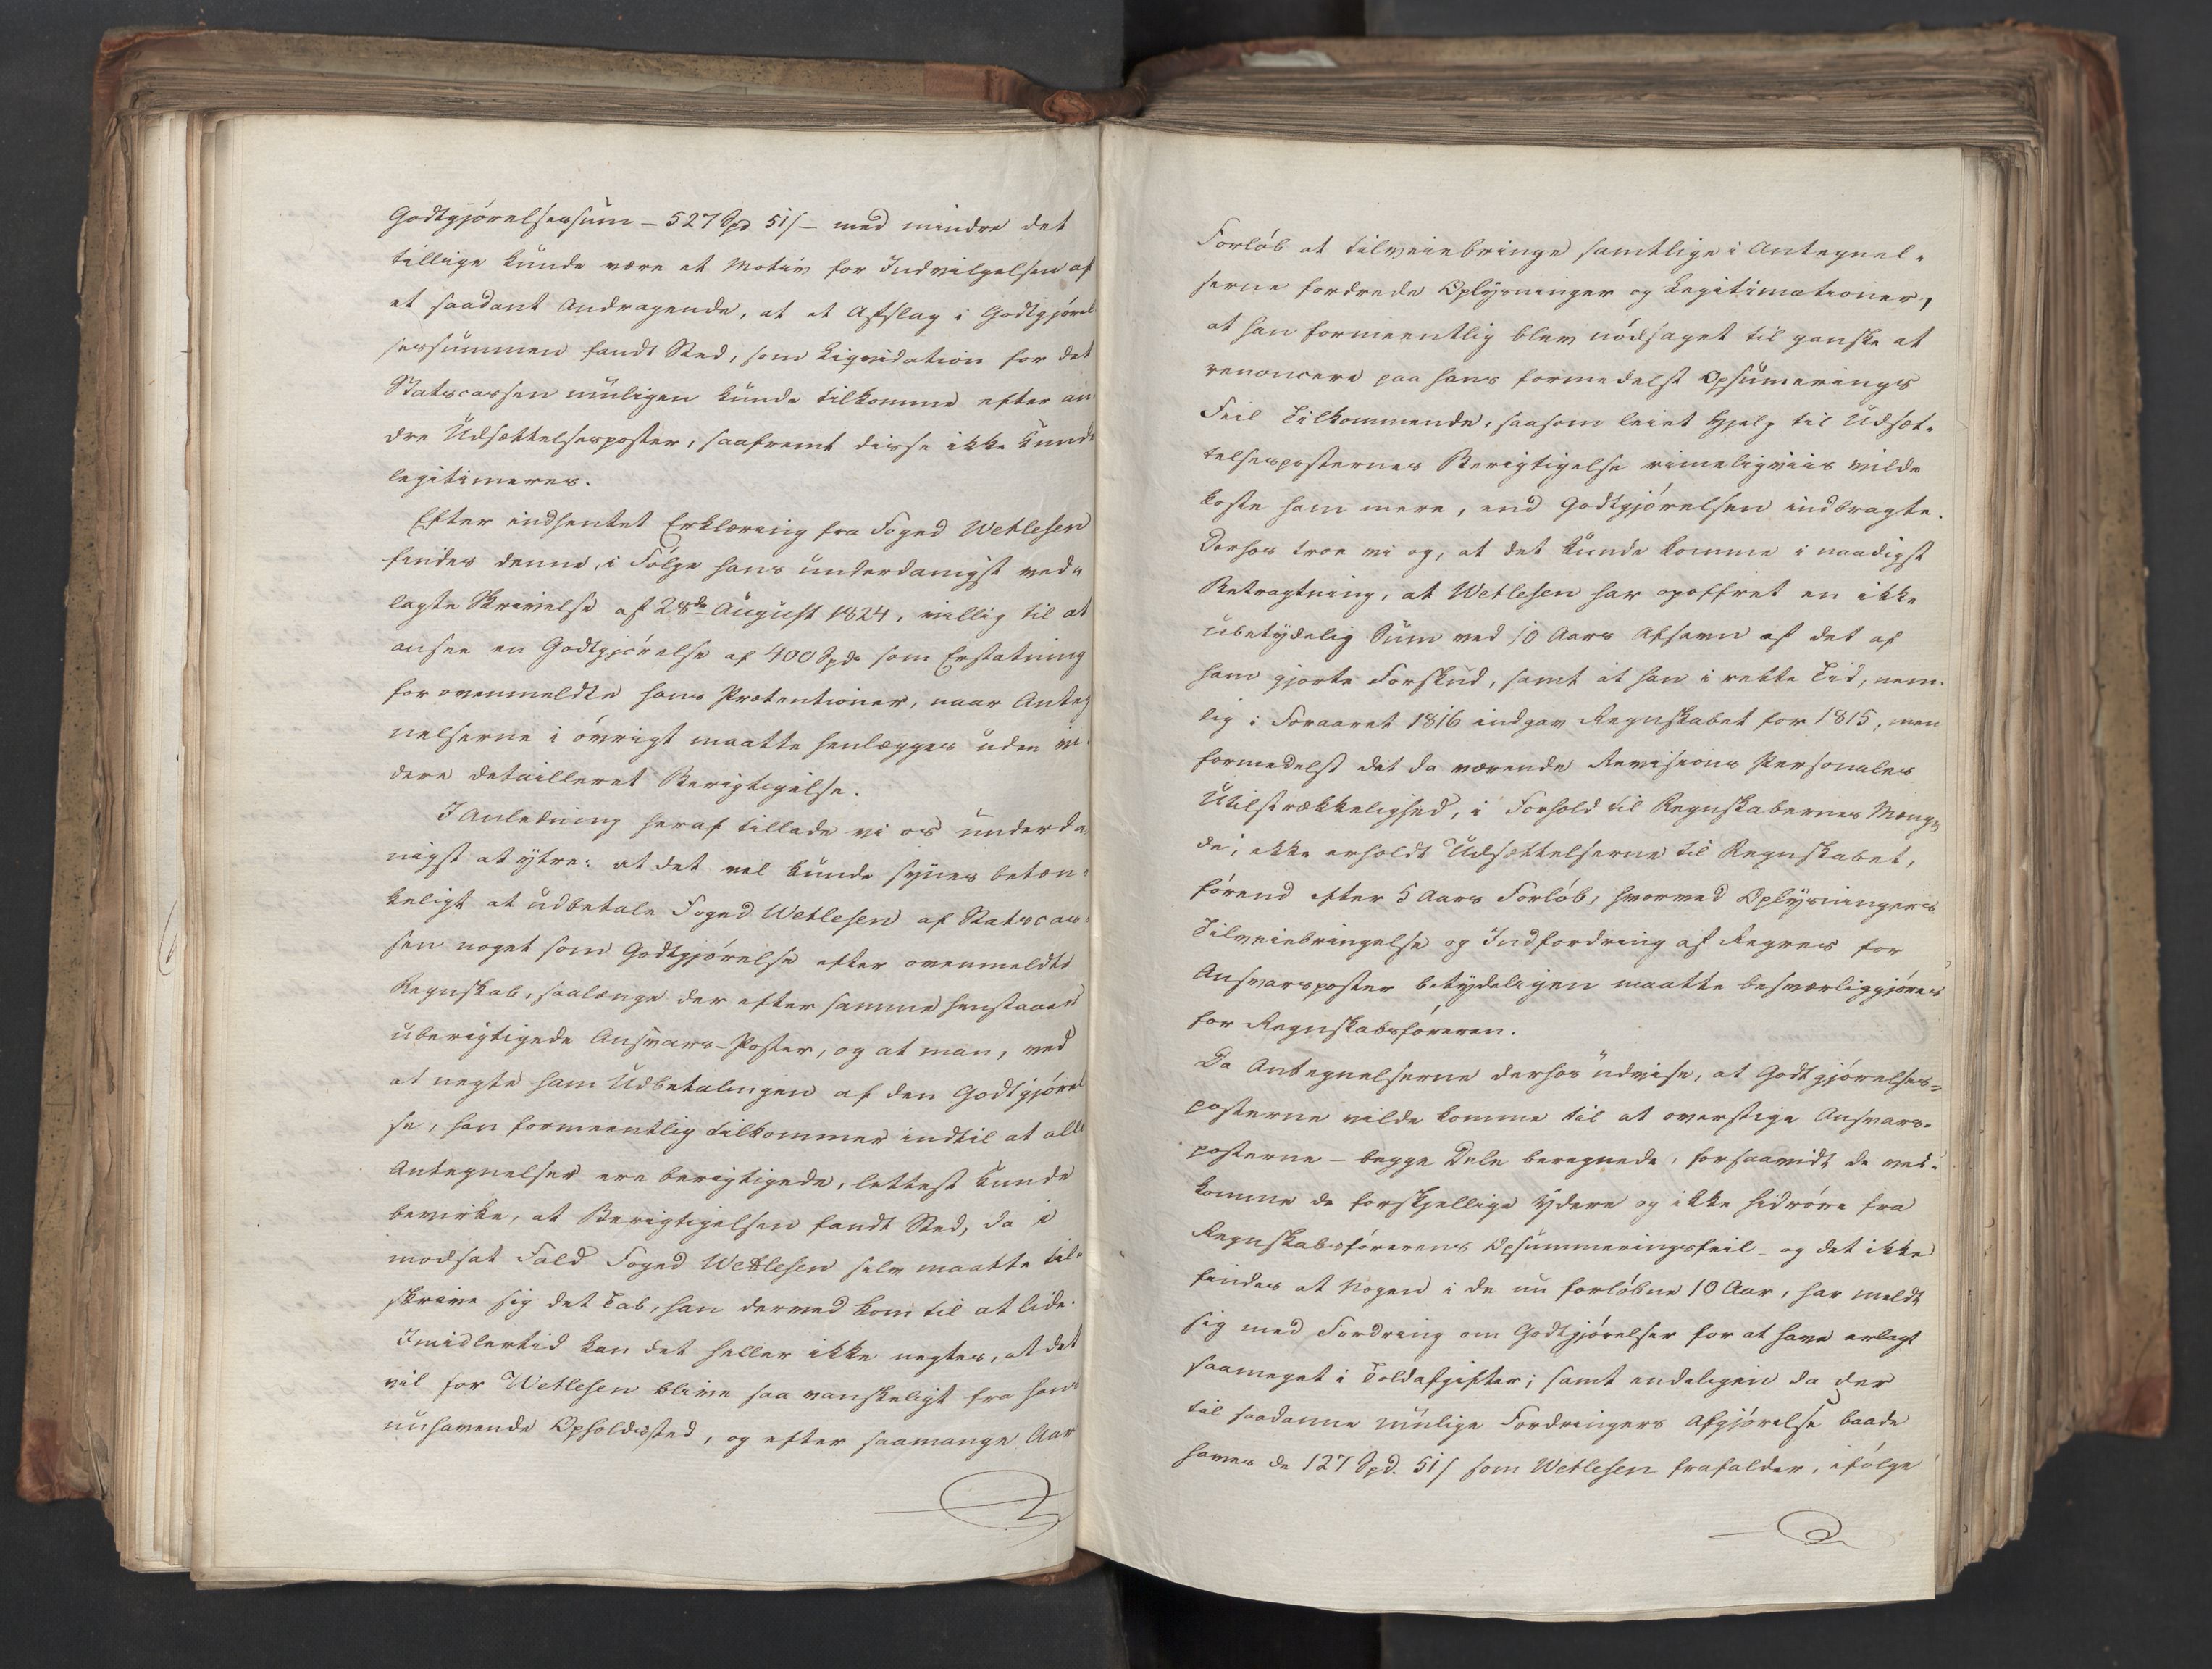 Godtgjörelsessum – 527 Spd 51 s – med mindre det
tillige kunde være et Motiv for Indvilgelsen af
et saadant Andragende, at et Afslag i Godtgjörel
sessummen fandt Sted, som Liqvidation for det
Statscassen muligen kunde tilkomme efter an
dre Udsættelsesposter, saafremt disse ikke kunde
legitimeres.
Efter indhentet Erklæring fra Foged Wetlesen
findes denne, i Fölge hans underdanigst ved„
lagte Skrivelse af 28de August 1824, villig til at
ansee en Godtgjörelse af 400 Spd. som Erstatning
for ovenmeldte hans Prætentioner, naar Anteg
nelserne i övrigt maatte henlægges uden vi„
dere detailleret Berigtigelse.
I Anledning heraf tillade vi os underda
nigst at ytre: at det vel kunde synes betæn„
keligt at udbetale Foged Wetlesen af Statscas„
sen noget som Godtgjörelse efter ovenmeldte
Regnskab, saalænge der efter samme henstaaer
uberigtigede Ansvars-Poster, og at man, ved
at negte ham Udbetalingen af den Godtgjörel
se, han formeentlig tilkommer indtil at alle
Antegnelser ere berigtigede, lettest kunde
bevirke, at Berigtigelsen fandt Sted, da i
modsat Fald Foged Wetlesen selv maatte til„
skrive sig det Tab, han derved kom til at lide.
Imidlertid kan det heller ikke negtes, at det
vil for Wetlesen blive saa vanskeligt fra hans
nuhavende Opholdssted, og efter saamange Aars
Forlöb at tilveiebringe samtlige i Antegnel„
serne fordrede Oplysninger og Legitimationer,
at han formeentlig blev nödsaget til ganske at
renoncere paa hans formedelst Opsumerings
Feil Tilkommende, saasom leiet Hjelp til Udsæt„
telsesposternes Berigtigelse rimeligviis vilde
koste ham mere, end Godtgjörelsen indbragte.
Derhos troe vi og, at det kunde komme i naadigst
Betragtning, at Wetlesen har opoffret en ikke
ubetydelig Sum ved 10 Aars Afsavn af det af
ham gjorte Forskud, samt at han i rette Tid, nem„
lig i Foraaret 1816 indgav Regnskabet for 1815, men
formedelst det da værende Revisions Personales
Utilstrækkelighed, i Forhold til Regnskabernes Mæng„
de, ikke erholdt Udsættelserne til Regnskabet,
förend efter 5 Aars Forlöb, hvorved Oplysningers
Tilveiebringelse og Indfordring af Regres for
Ansvarsposter betydeligen maatte besværliggjöres
for Regnskabsföreren.
Da Antegnelserne derhos udvise, at Godtgjörelses„
posterne vilde komme til at overstige Ansvars„
posterne – begge Dele beregnede, forsaavidt de ved„
komme de forskjellige Ydere og ikke hidröre fra
Regnskabsförerens Opsummeringsfeil – og det ikke
findes at Nogen i de nu forlöbne 10 Aar, har meldt
sig med Fordring om Godtgjörelser for at have erlagt
saameget i Toldafgifter; samt endeligen da der
til saadanne mulige Fordringers Afgjörelse baade
haves de 127 Spd. 51 s som Wetlesen frafalder, ifölge